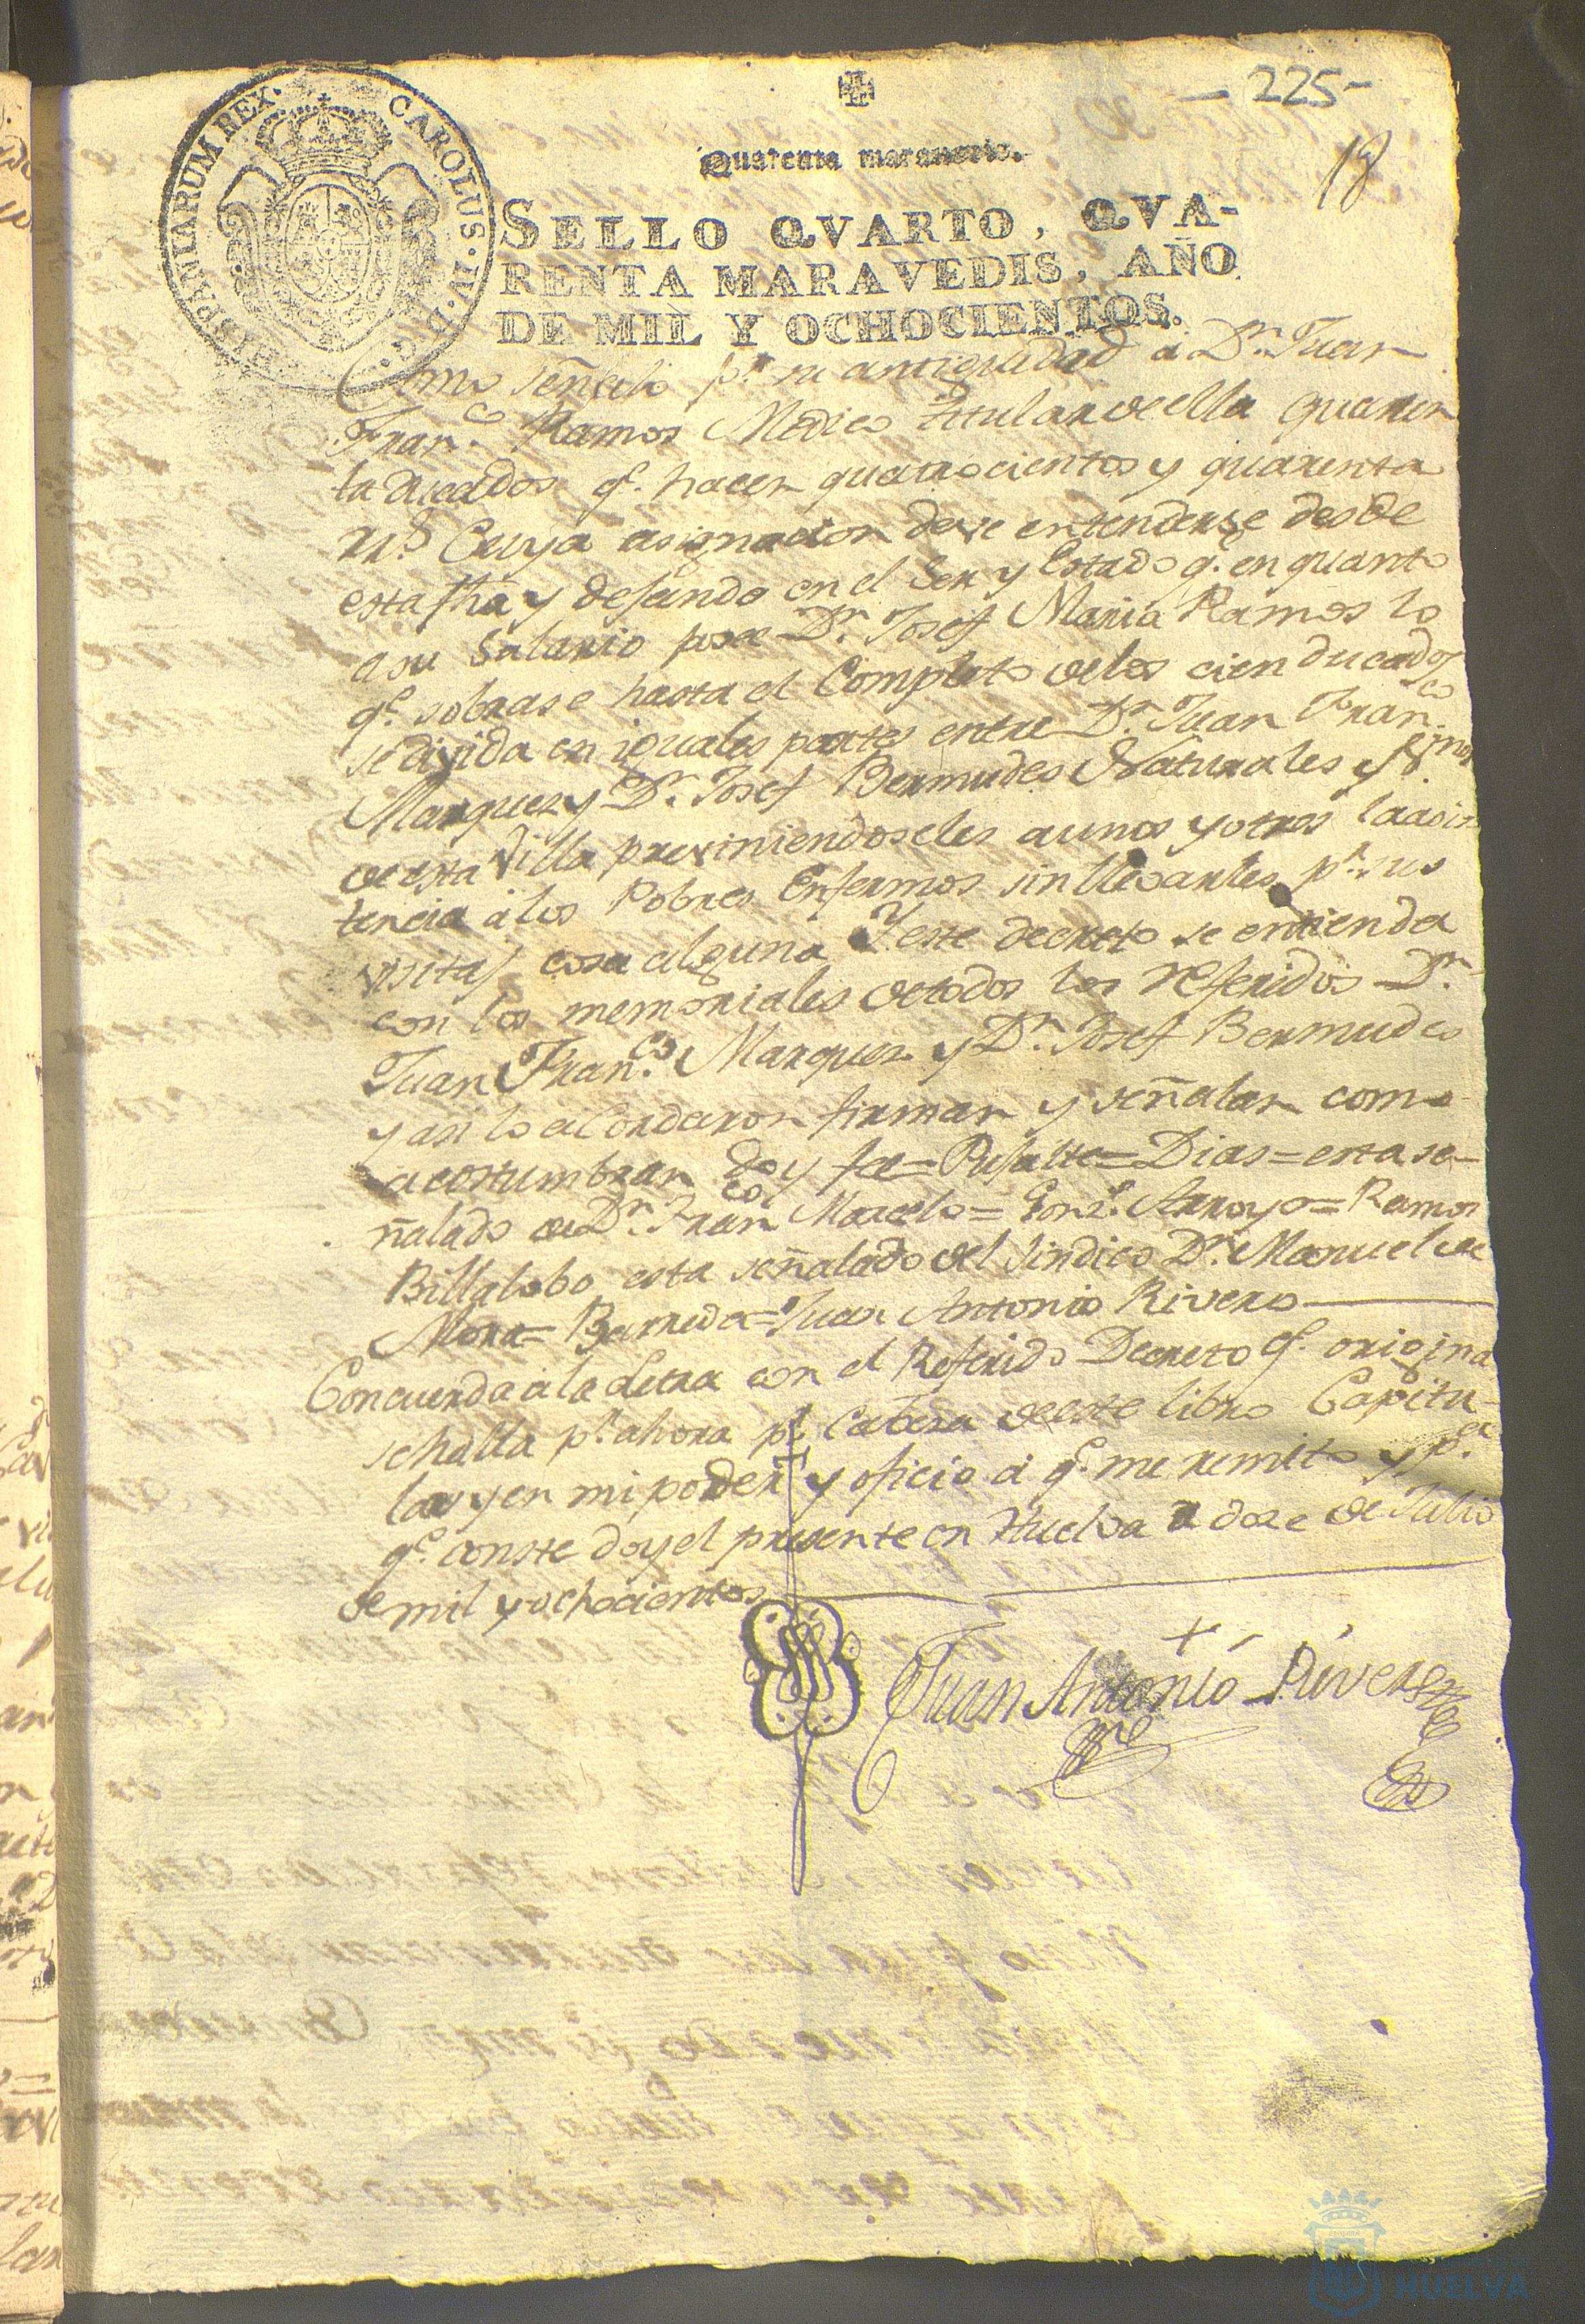 - 225 -
18
Quarenta maravedis.
HISPANIARUM REX. CAROLUS. IV. D. G.
SELLO QVARTO, QVA-
RENTA MARAVEDIS, AÑO
DE MIL Y OCHOCIENTOS.
Como señalo pr. su antiguedad á Dn. Juan
Franco. Ramos Medico titular de ella quaren
ta ducados qe. hacen quatrocientos y quarenta
rrs. Cuya asignacion deve entenderse desde
esta fha y dejando en el Ser y Estado q. en quanto
a su Salario posee Dn. Josef Maria Ramos lo
qe. sobrase hasta el Completo de los cien ducados
se divida en iguales partes entre Dn. Juan Franco.
Marquez y Dn. Josef Bermudes Naturales y
de esta Villa previniendoseles a unos y otros la asis
tencia á los Pobres Enfermos sin llevarles pr. sus
visitas cosa alguna Y este decreto se entienda
con los memoriales de todos los referidos Dn.
Juan Franco. Marquez y Dn. Josef Bermudes
y asi lo acordaron firman y señalan como
acostumbran doy fee= Pusalte= Dias= esta se-
ñalado de Dn. Franco Marcelo= Gonz. Arroyo= Ramon
Billalobo esta señalado del Sindico Dn. Manuel de
Mora= Barreda= Juan Antonio Rivero
Concuerda a la Letra con el Referido Decreto qe. origina
se halla pr. ahora pr. Cabesa de este libro Capitu-
lar y en mi poder y oficio á qe. me remito y pa.
qe. conste doy el presente en Huelva a dose de Julio
de mil y ochocientos
Juan Antonio Rivero
HUELVA